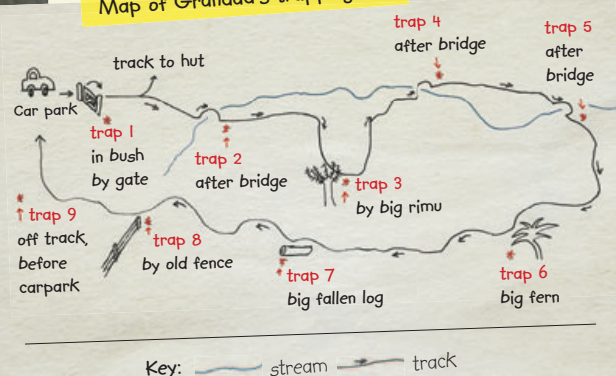 Map of Grandad's
track to hut
Car park
trap 1
in bush
by gate
trap 2
after bridge
trap 3
by big rimu
trap 4
after bridge
trap 5
after
bridge
trap 6
big fern
trap 7
big fallen log
trap 8
by old fence
trap 9
off track,
before
carpark
Key: stream track